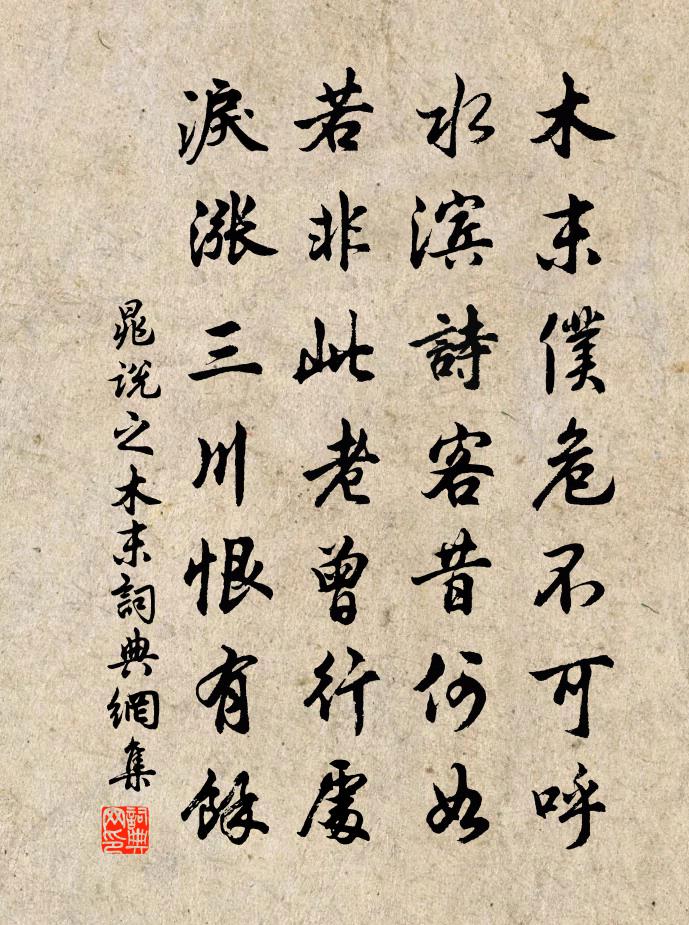 木末僕危不可呼
水滨詩客昔何如
若非此老曾行處
淚漲三川恨有餘
晁说之木末詞典網集
詞典網印